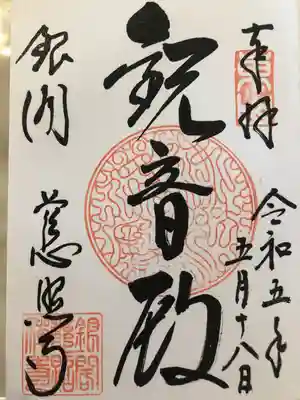 奉拝
令和五年
五月十八日
観音殿
銀閣
慈照寺